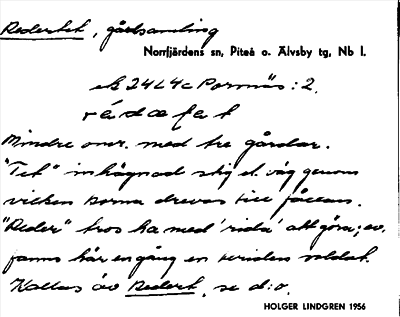 Redertet, gårdsamling
Norrfjärdens sn, Piteå o. Älvsby tg, Nb l.
ek 24L4c Porsnäs:2.
Mindre omr. med tre gårdar.
"Tet" inhägnad stig el. väg genom
vilken korna drevos till fäboden.
"Reder" tros ha med 'rida' att göra; ev.
fanns här en gång en
Kallas äv Redert, se d:o.
HOLGER LINDGREN 1956